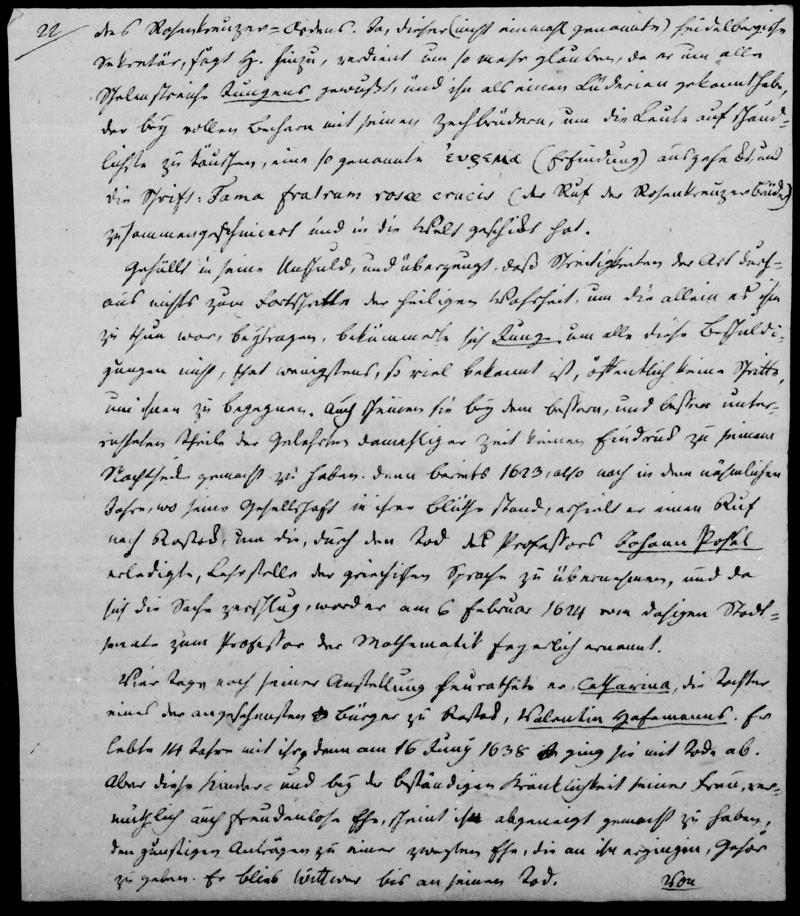 22/ des Rosenkreuzer-Ordens. Ja, dieser (nicht einmahl genannte) Heidelbergische
Sekretär, sagt H. hinzu, verdient um so mehr glauben, da er um alle
Schelmstreiche Jungens gewußt, und ihn als einen Lüderien gekannt habe,
der bey vollen Bechern mit seinen Zechbrüdern, um die Leute auf schänd-
lichste zu täuschen, eine so genannte (Erfindung) ausgeheckt, und
die Schrift: Fama fratrum roseæ crucis (der Ruf der Rosenkreuzerbrüder)
zusammengeschmiert und in die Welt geschickt hat.
Gehüllt in seine Unschuld, und überzeugt, daß Streitigkeiten der Art durch-
aus nichts zum Fortschritte der heiligen Wahrheit, um die allein es ihm
zu thun war, beytragen, bekümmerte sich Junge um alle diese Beschuldi-
gungen nicht, that wenigstens, so viel bekannt ist, öffentlich keine Schritte,
um ihnen zu begegnen. Auch scheinen sie bey dem bessern, und besser unter-
richteten Theile der Gelehrten damahliger Zeit keinen Eindruck zu seinem
Nachtheile gemacht zu haben. denn bereits 1623, also noch in dem nähmlichen
Jahre, wo seine Gesellschaft in ihrer Blüthe stand, erhielt er einen Ruf
nach Rostock, um die, durch den Tod des Professors Johann Posel
erledigte, Lehrstelle der griechischen Sprache zu übernehmen, und da
sich die Sache zerschlug, ward er am 6 Februar 1624 vom dasigen Stadt-
senate zum Professor der Mathematik feyerlich ernannt.
Vier Tage nach seiner Anstellung heurathete er Catharina, die Tochter
eines der angesehensten Bürger zu Rostock, Valentin Hafemanns. Er
lebte 14 Jahre mit ihr, denn am 16 Juny 1638 ging sie mit Tode ab.
Aber diese Kinder- und bey der beständigen Kränklichkeit seiner Frau, ver-
muthlich auch freudenlose Ehe, scheint ihn abgeneigt gemacht zu haben,
den günstigen Anträgen zu einer zweyten Ehe, die an ihn ergingen, Gehör
zu geben. Er blieb Wittwer bis an seinen Tod. Von